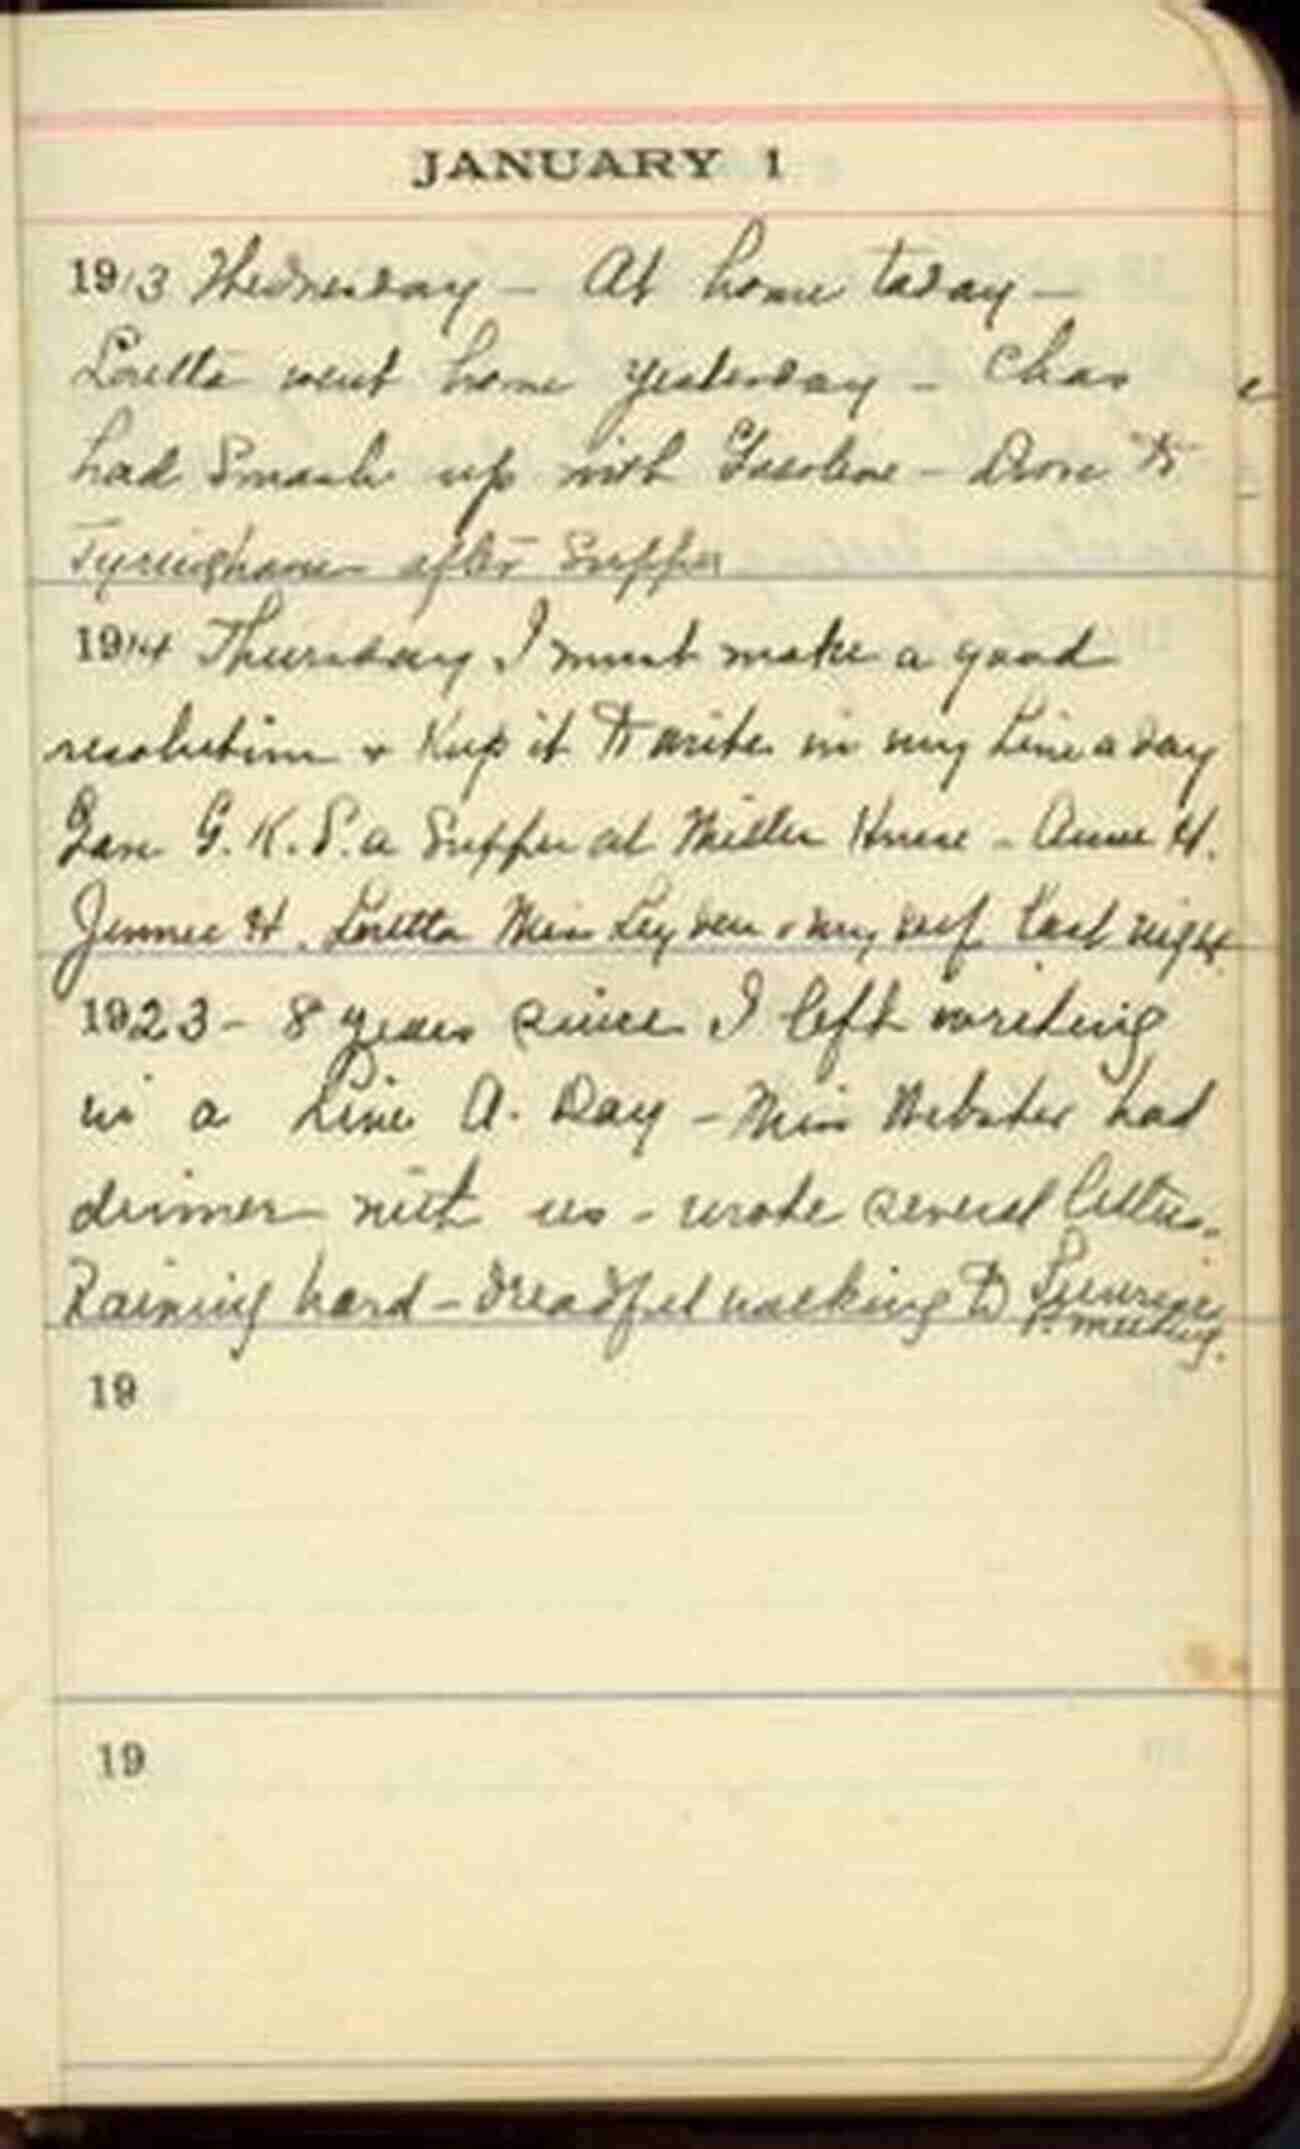 JANUARY 1
1913 Wednesday - At home today -
Loretta went home yesterday - Chas
had Smash up with Gasoline - Drove to
Tyringham after Supper
1914 Thursday I must make a good
resolution & Keep it to write in my Line a day
Gave G. K. S. a Supper at Miller House - Anne H.
Jennie H. Loretta Miss Leyden & my self last night
1923 - 8 years since I left writing
in a Line A. Day - Miss Webster had
dinner with us - wrote several letters.
Raining hard - dreadful walking to
meeting.
19
19